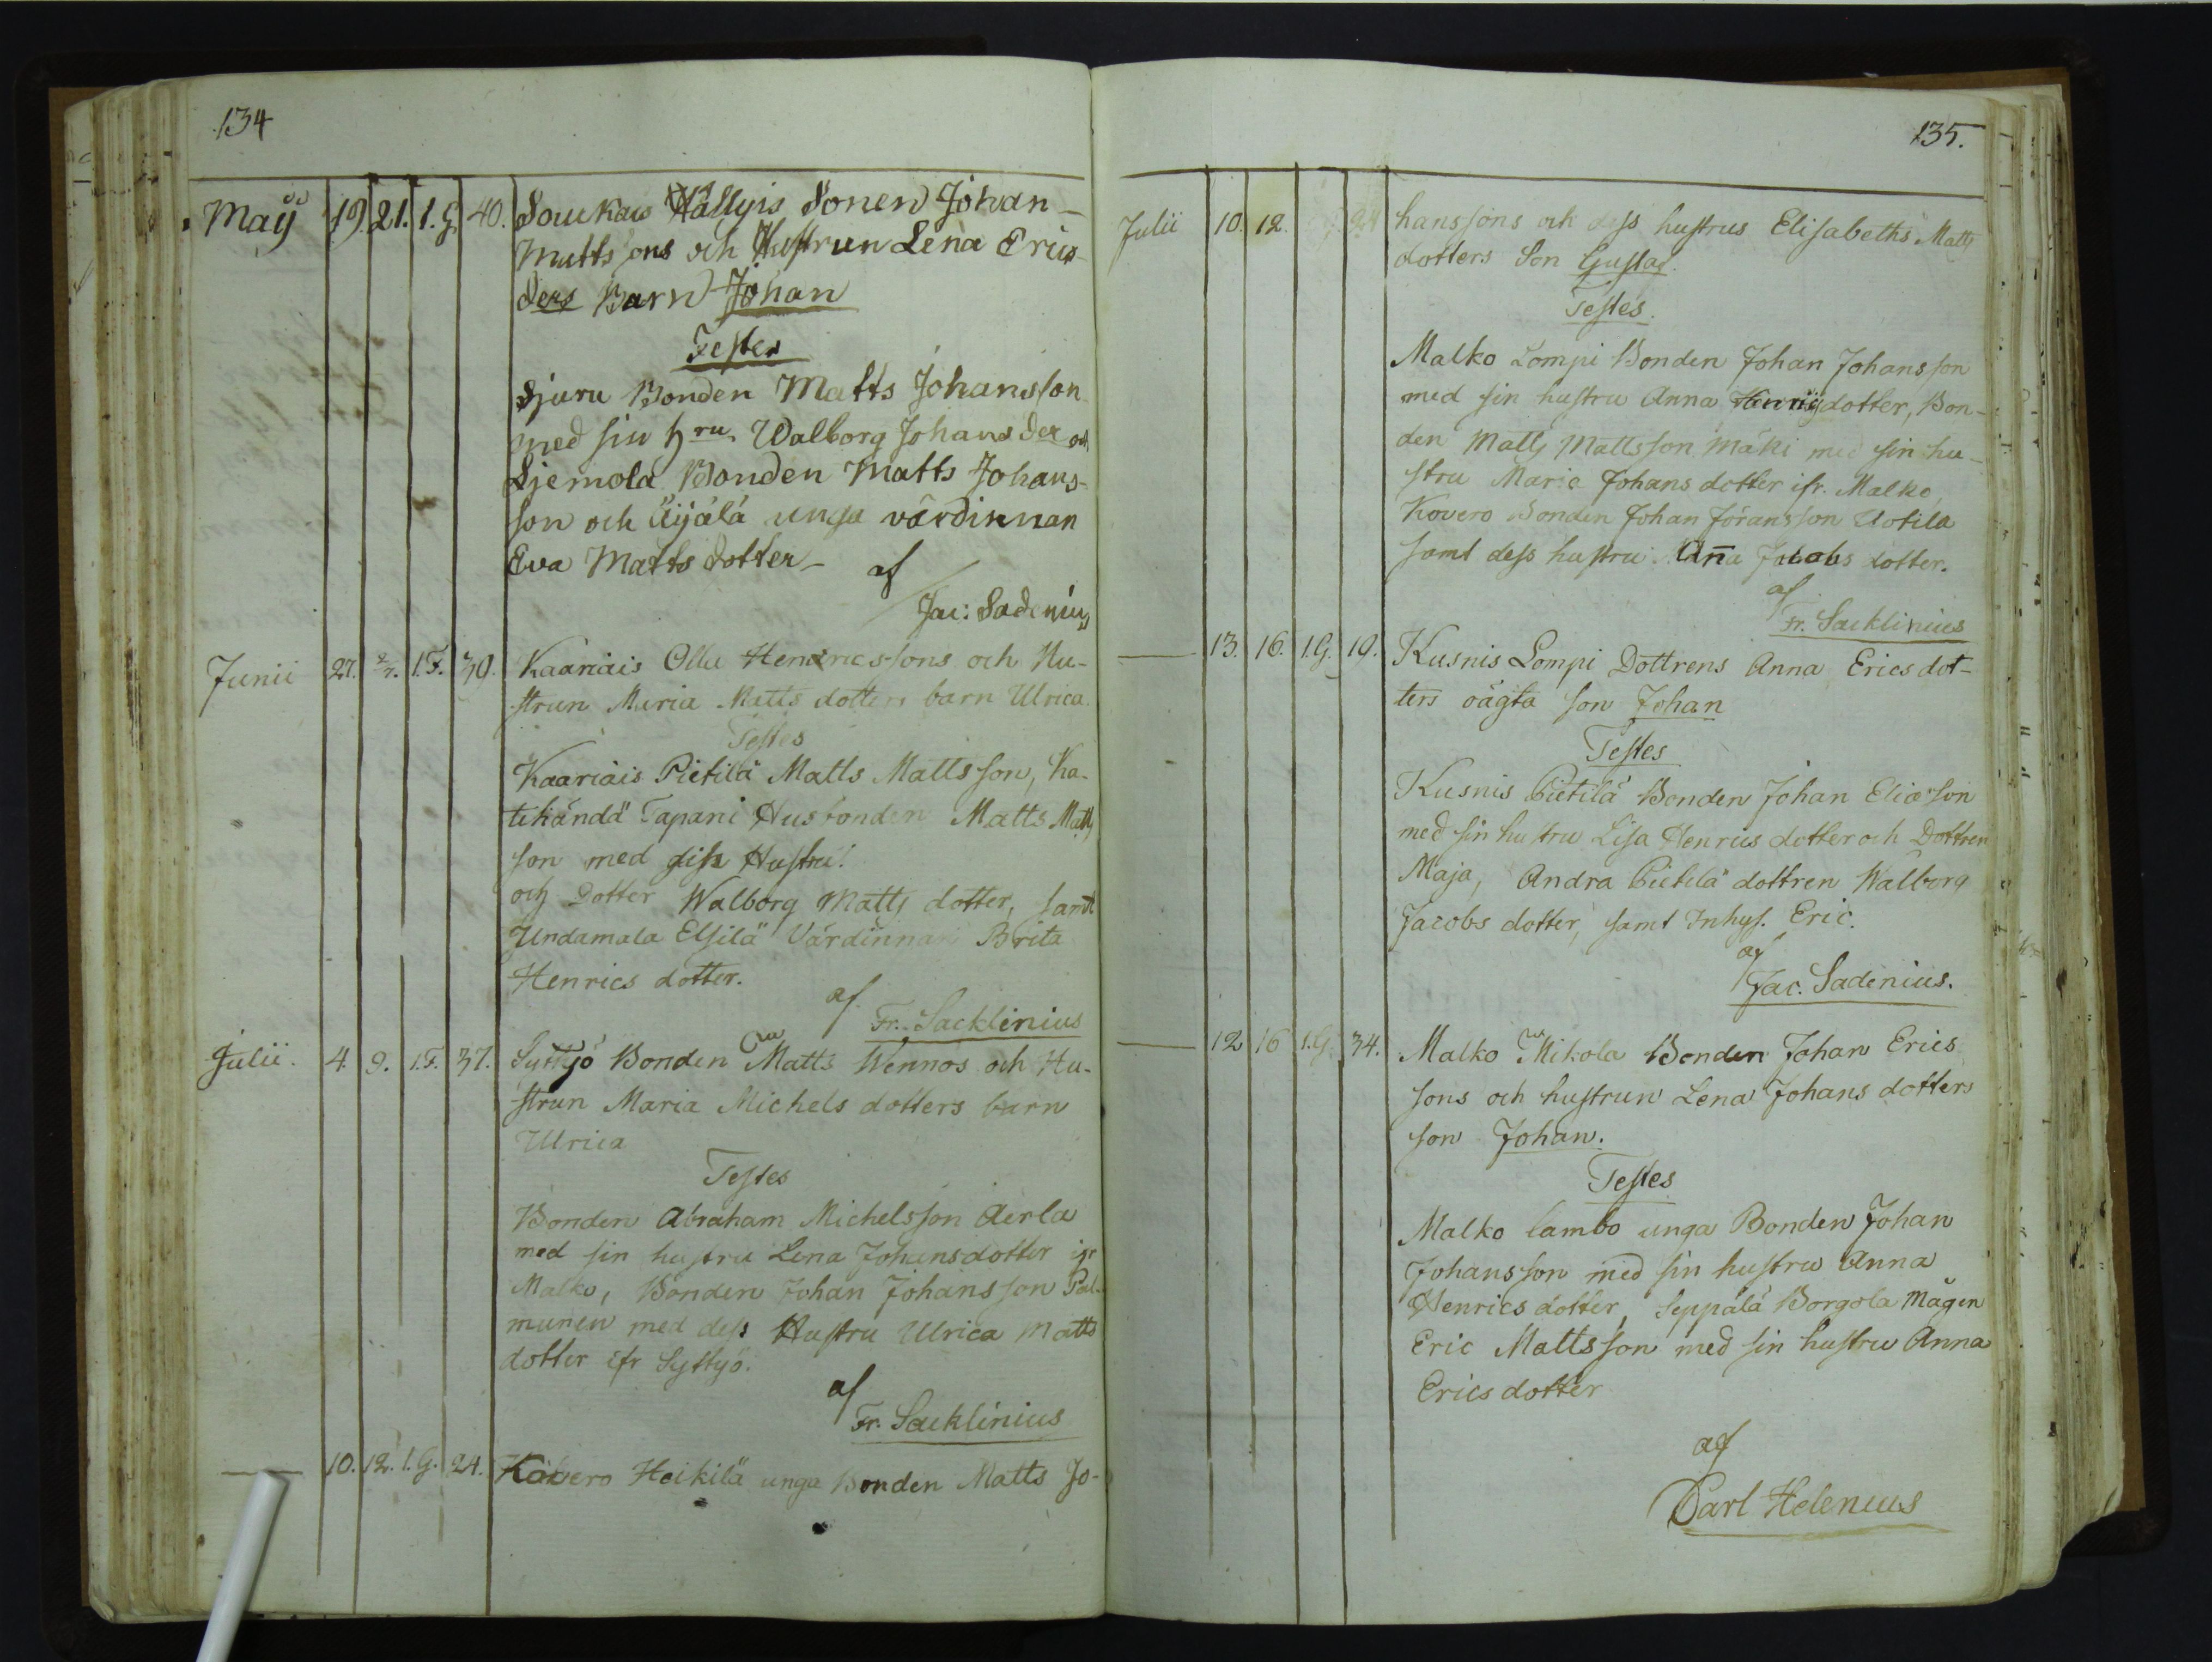 134
Maÿ 19. 21. 1.G. 40. Soukais Hällyis Sonen Johan
Mattssons och Hustrun Lena Erics
ders Barn Johan
Testes
Sjuru Bonden Matts Johansson
med sin hru. Walborg Johans der och
Ljemola Bonden Matts Johans-
son och Äijälä unga värdinnan
Eva Matts dotter _ af
Jac: Sadenius
Junii 27. 2/7. 1.F. 39. Kaariais Olla Henricssons och Hu-
strun Maria Matts dotters barn Ulrica.
Testes
Kaariais Pietilä Matts Mattsson, Ka-
tihändä Tapani Husbonden Matts Matts
son med Hustru
och Dotter Walborg Matts dotter, samt
Undamala Elsilä Värdinnan Brita
Henrics dotter.
af
Fr. Sacklinius
Julii. 4. 9. 1.F. 37. Syttyö Bonden Matts Wennos och Hu-
strun Maria Michels dotters barn
Ulrica
Testes
Bonden Abraham Michelsson Aerla
med sin hustru Lena Johansdotter ifr
Malko, Bonden Johan Johansson Pal-
munen med dess Hustru Ulrica Matts
dotter ifr Syttyö.
af
Fr. Sacklinius
— 10. 12. 1.G. 24. Kåvero Heikilä unga Bonden Matts Jo-
135.
Julii 10. 12. 24 hanssons och dess hustrus Elisabeths Matts
dotters Son Gustaf.
Testes.
Malko Lompi Bonden Johan Johansson
med sin hustru Anna Henricsdotter, Bon-
den Matts Mattsson Mäki med sin hu-
stru Maria Johans dotter ifr. Malko,
Kovero Bonden Johan Jöransson Uotila
samt dess hustru Anna Jacobs dotter.
af
Fr. Sacklinius
— 13. 16. 1.G. 19. Kusnis Lompi Dottrens Anna Erics dot-
ters oägta son Johan
Testes
Kusnis Pietilä Bonden Johan Eliasson
med sin hustru Lisa Henrics dotter och Dottren
Maja, Andra Pietilä dottren Walborg
Jacobs dotter, samt Inhys. Eric.
af
Jac. Sadenius.
— 12 16 1.G. 34. Malko Mikola Bonden Johan Erics
sons och hustrun Lena Johans dotters
son Johan.
Testes
Malko lambo unga Bonden Johan
Johansson med sin hustru Anna
Henrics dotter, Seppälä Borgola Mågen
Eric Mattsson med sin hustru Anna
Erics dotter
af
Carl Helenius